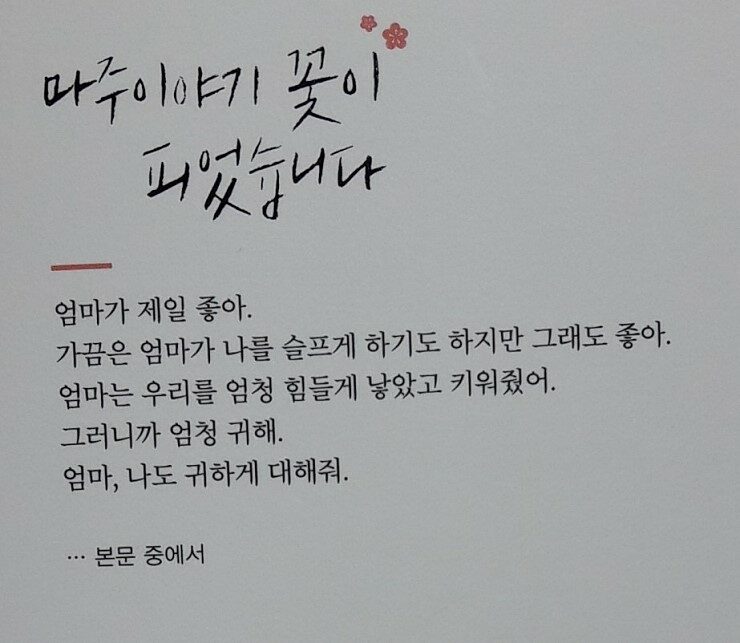 마주이야기 꽃이
피었습니다
엄마가 제일 좋아.
가끔은 엄마가 나를 슬프게 하기도 하지만 그래도 좋아.
엄마는 우리를 엄청 힘들게 낳았고 키워줬어.
그러니까 엄청 귀해.
엄마, 나도 귀하게 대해줘.
··· 본문 중에서